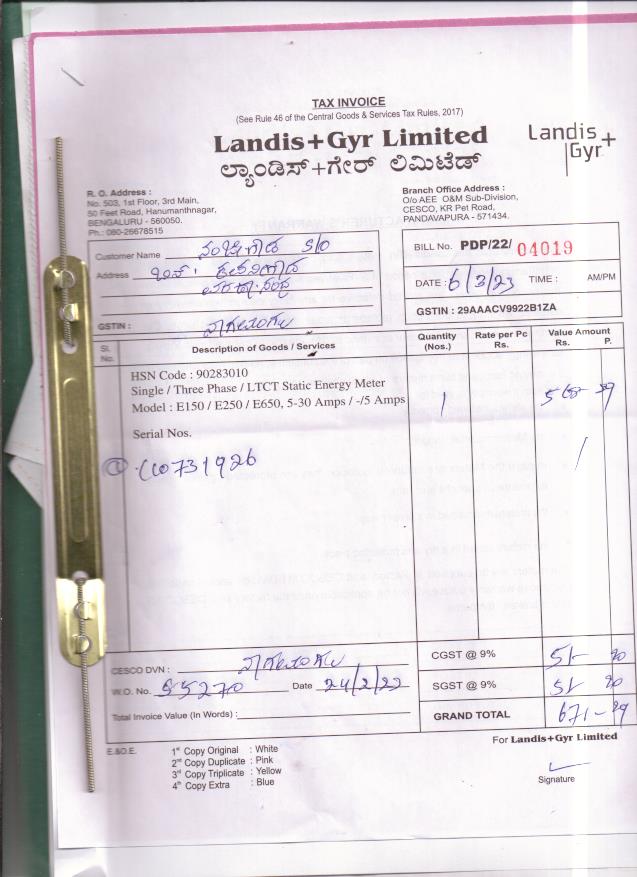 TAX INVOICE
(See Rule 46 of the Central Goods & Services Tax Rules, 2017)
Landis+Gyr Limited
ಲ್ಯಾಂಡಿಸ್+ಗೇರ್ ಲಿಮಿಟೆಡ್
Landis+
Gyr
R. O. Address :
No. 503, 1st Floor, 3rd Main,
50 Feet Road, Hanumanthnagar,
BENGALURU - 560050.
Ph.: 080-26678515
Branch Office Address :
O/o AEE O&M Sub-Division,
CESCO, KR Pet Road,
PANDAVAPURA - 571434.
Customer Name S/O
Address
GSTIN :
BILL No. PDP/22/ 04019
DATE : 6/3/23 TIME : AM/PM
GSTIN : 29AAACV9922B1ZA
Sl. No. Description of Goods / Services Quantity (Nos.) Rate per Pc Rs. Value Amount Rs. P.
HSN Code : 90283010
Single / Three Phase / LTCT Static Energy Meter
Model : E150 / E250 / E650, 5-30 Amps / -/5 Amps 1
Serial Nos.
CESCO DVN :
W.O. No. 55270 Date 24/2/22
Total Invoice Value (In Words) :
CGST @ 9% 51-
SGST @ 9% 51-
GRAND TOTAL 671-
E.&O.E.
1st Copy Original : White
2nd Copy Duplicate : Pink
3rd Copy Triplicate : Yellow
4th Copy Extra : Blue
For Landis+Gyr Limited
Signature